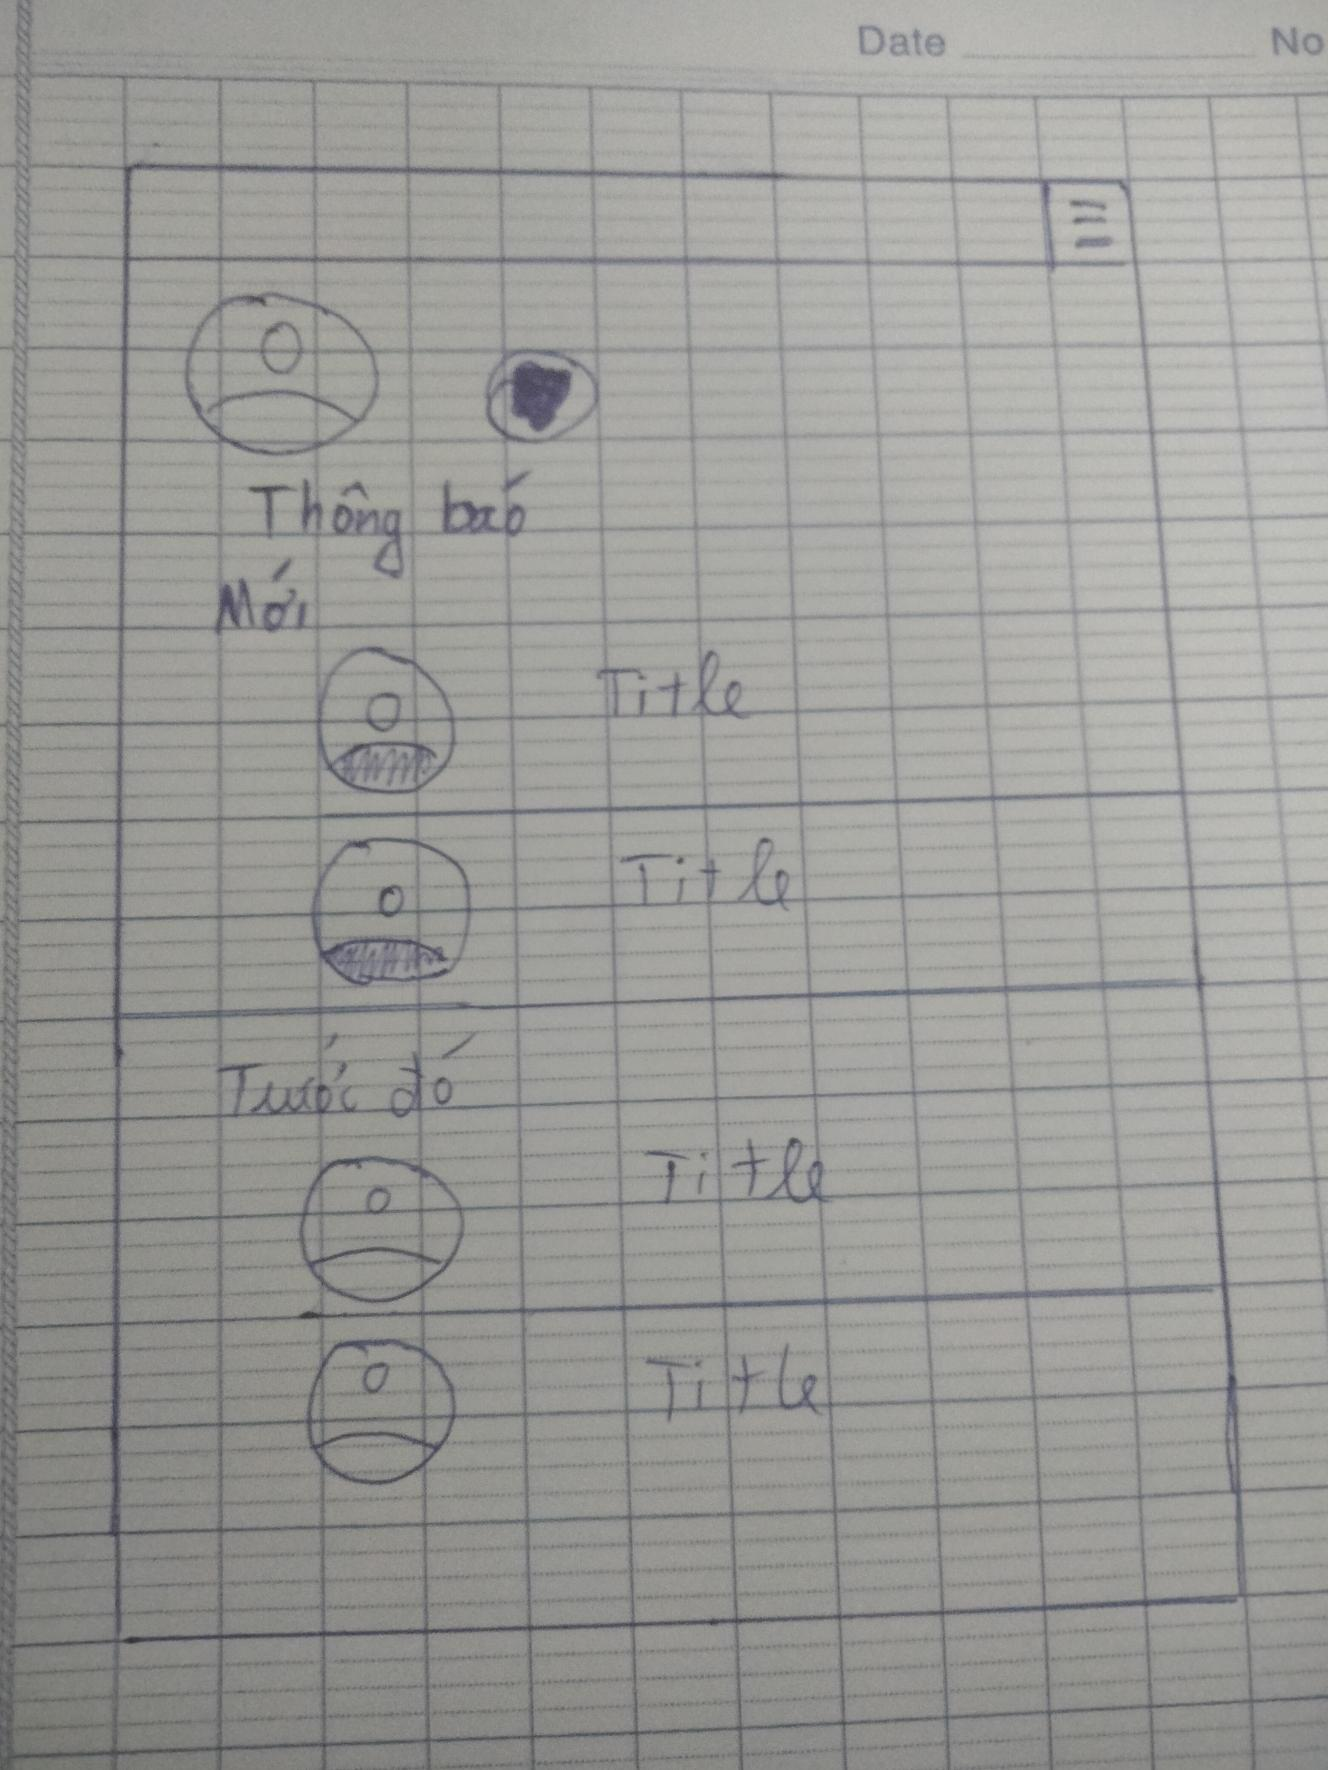 Date No
Thông báo
Mới
Title
Title
Trước đó
Title
Title